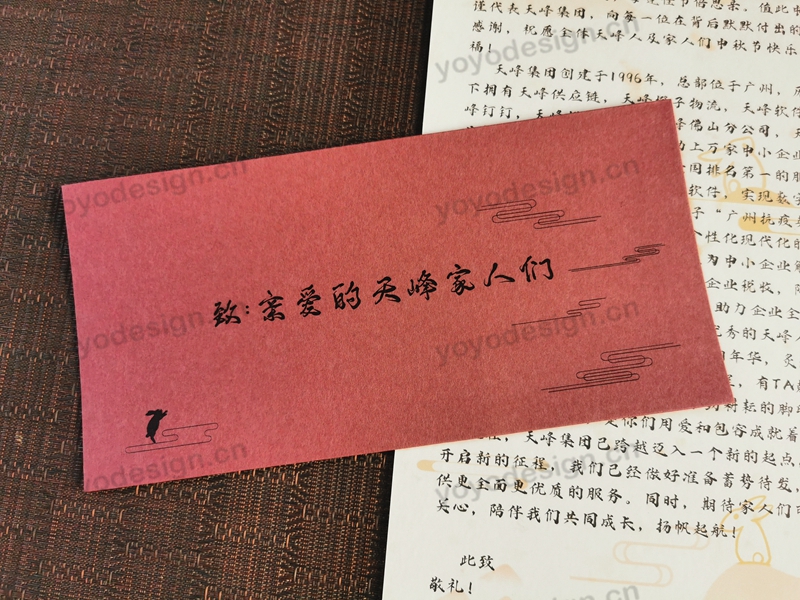 致:亲爱的天峰家人们
节倍思亲。值此中
谨代表天峰集团,向每一位在背后默默付出的
感谢,祝愿全体天峰人及家人们中秋节快乐
福!
天峰集团创建于1996年,总部位于广州,
下拥有天峰供应链,天峰 子物流,天峰软件
峰钉钉,天峰 峰佛山分公司,天
上万家中小企业
国排名第一的服
软件,实现数实
子“广州抗疫
性化现代化的
为中小企业
企业税收,
助力企业全
优秀的天峰人
年华,炙
,有TA
耕耘的脚
是你们用爱和包容成就着
天峰集团已跨越迈入一个新的起点
开启新的征程,我们已经做好准备蓄势待发,
供更全面更优质的服务。同时,期待家人们
关心,陪伴我们共同成长,扬帆起航!
此致
敬礼!
yoyodesign.cn
yoyodesign.cn
yoyodesign.cn
yoyodesign.cn
yoyodesign.cn
yoyodesign.cn
yoyodesign.cn
yoyodesign.cn
yoyodesign.cn